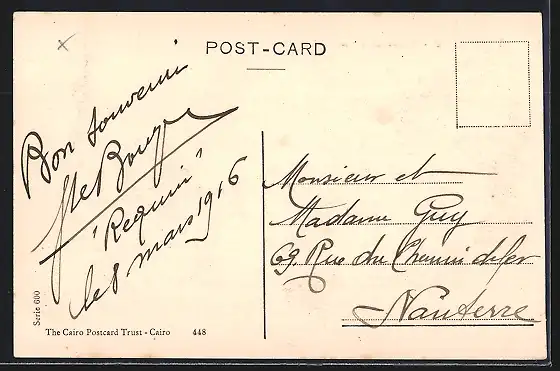 POST-CARD
Bon souvenir
"Requin"
le 8 mars 1916
Monsieur et
Madame Guy
69. Rue du Chemin de fer
Nanterre
Serie 600
The Cairo Postcard Trust - Cairo 448